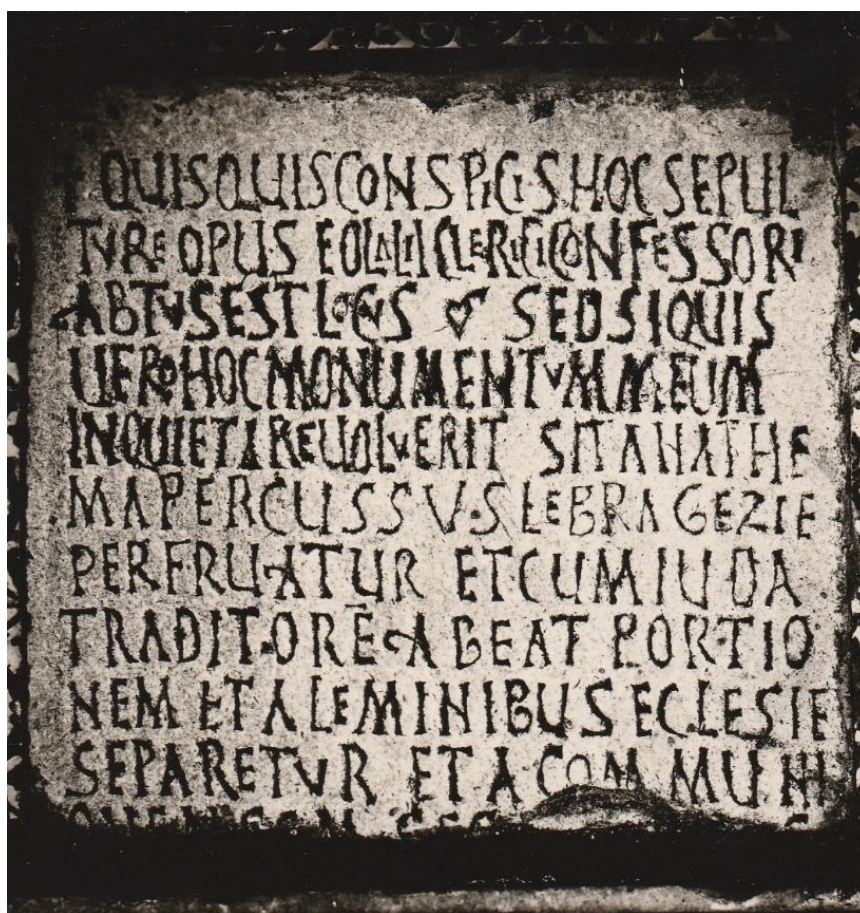 + QUISQUIS CONSPICIS HOC SEPUL
TVRE OPUS EOLALII CLERICI CONFESSORI
ABTVS EST LOCVS ❦ SED SI QUIS
UERO HOC MONUMENTVM MEUM
INQUIETARE UOLVERIT SIT ANATHE
MA PERCUSSVS LEBRA GEZIE
PERFRUATUR ET CUM IUDA
TRADITORĒ ABEAT PORTIO
NEM ET A LEMINIBUS ECLESIE
SEPARETVR ET A COMMUNI